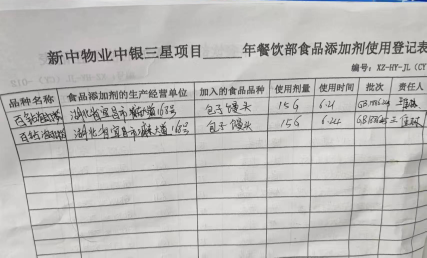 新中物业中银三星项目_____年餐饮部食品添加剂使用登记表
编号：XZ-HY-JL（CY
品种名称 食品添加剂的生产经营单位 加入的食品品种 使用剂量 使用时间 批次 责任人
湖北省宜昌市 大道168号 包子馒头 15G 6.21
湖北省宜昌市 大道168号 包子馒头 15G 6.24